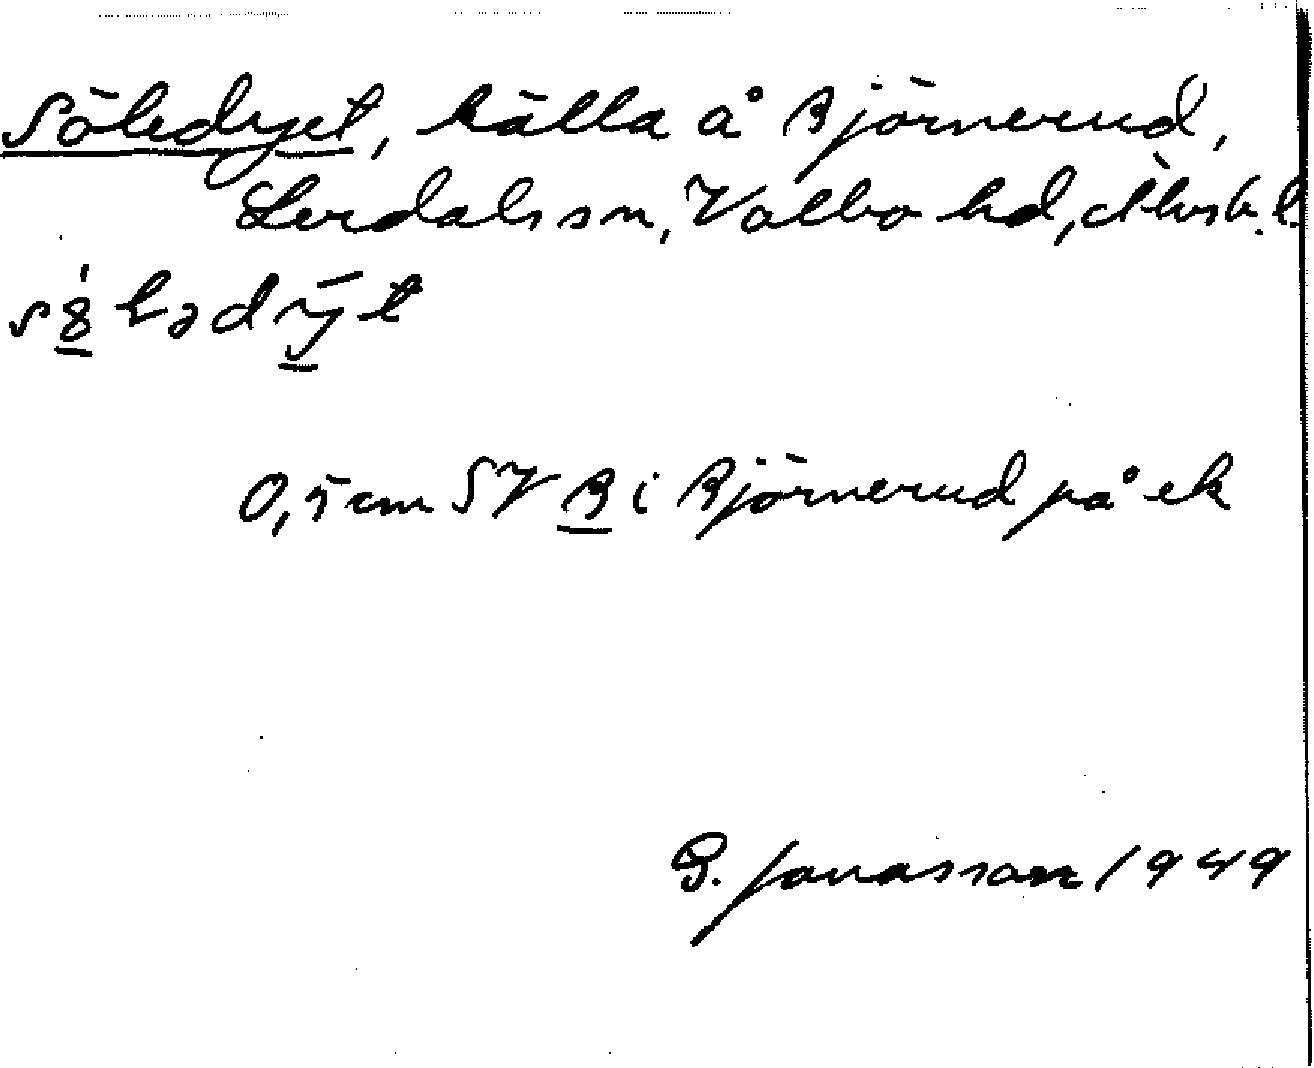 Söledyet, källa å Björnerud,
Lerdals sn, Valbo hd, Älvsb. l.
0,5 cm SV B i Björnerud på ek
G. Jonasson 1949